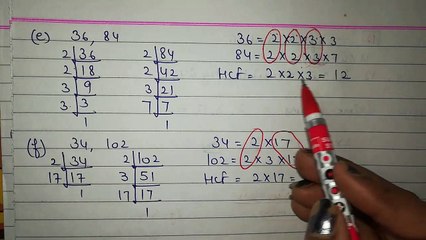 (e) 36, 84
2 | 36
2 | 18
3 | 9
3 | 3
1
2 | 84
2 | 42
3 | 21
7 | 7
1
36 = 2×2×3×3
84 = 2×2×3×7
Hcf = 2×2×3 = 12
(f) 34, 102
2 | 34
17 | 17
1
2 | 102
3 | 51
17 | 17
1
34 = 2×17
102 = 2×3×1
Hcf = 2×17 =